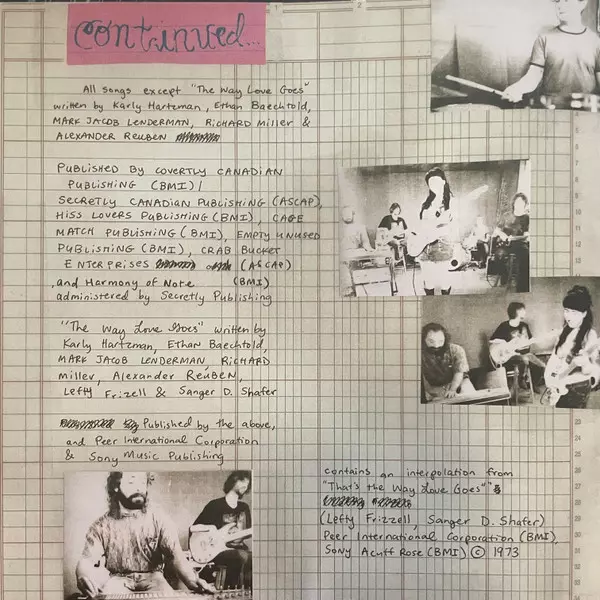 continued...
All songs except "The Way Love Goes"
written by Karly Hartzman, Ethan Baechtold,
MARK JACOB LENDERMAN, RICHARD Miller &
ALEXANDER REUBEN
PUBLISHED BY COVERTLY CANADIAN
PUBLISHING (BMI)/
SECRETLY CANADIAN PUBLISHING (ASCAP),
HISS LOVERS PUBLISHING (BMI), CAGE
MATCH PUBLISHING (BMI), EMPTY UNUSED
PUBLISHING (BMI), CRAB BUCKET
ENTERPRISES (ASCAP)
and Harmony of Note (BMI)
administered by Secretly Publishing
"The Way Love Goes" written by
Karly Hartzman, Ethan Baechtold,
MARK JACOB LENDERMAN, RICHARD
Miller, Alexander REUBEN,
Lefty Frizell & Sanger D. Shafer
Published by the above,
and Peer International Corporation
& Sony Music Publishing
contains an interpolation from
"That's the Way Love Goes"
(Lefty Frizzell, Sanger D. Shafer)
Peer International Corporation (BMI),
Sony Acuff Rose (BMI) © 1973